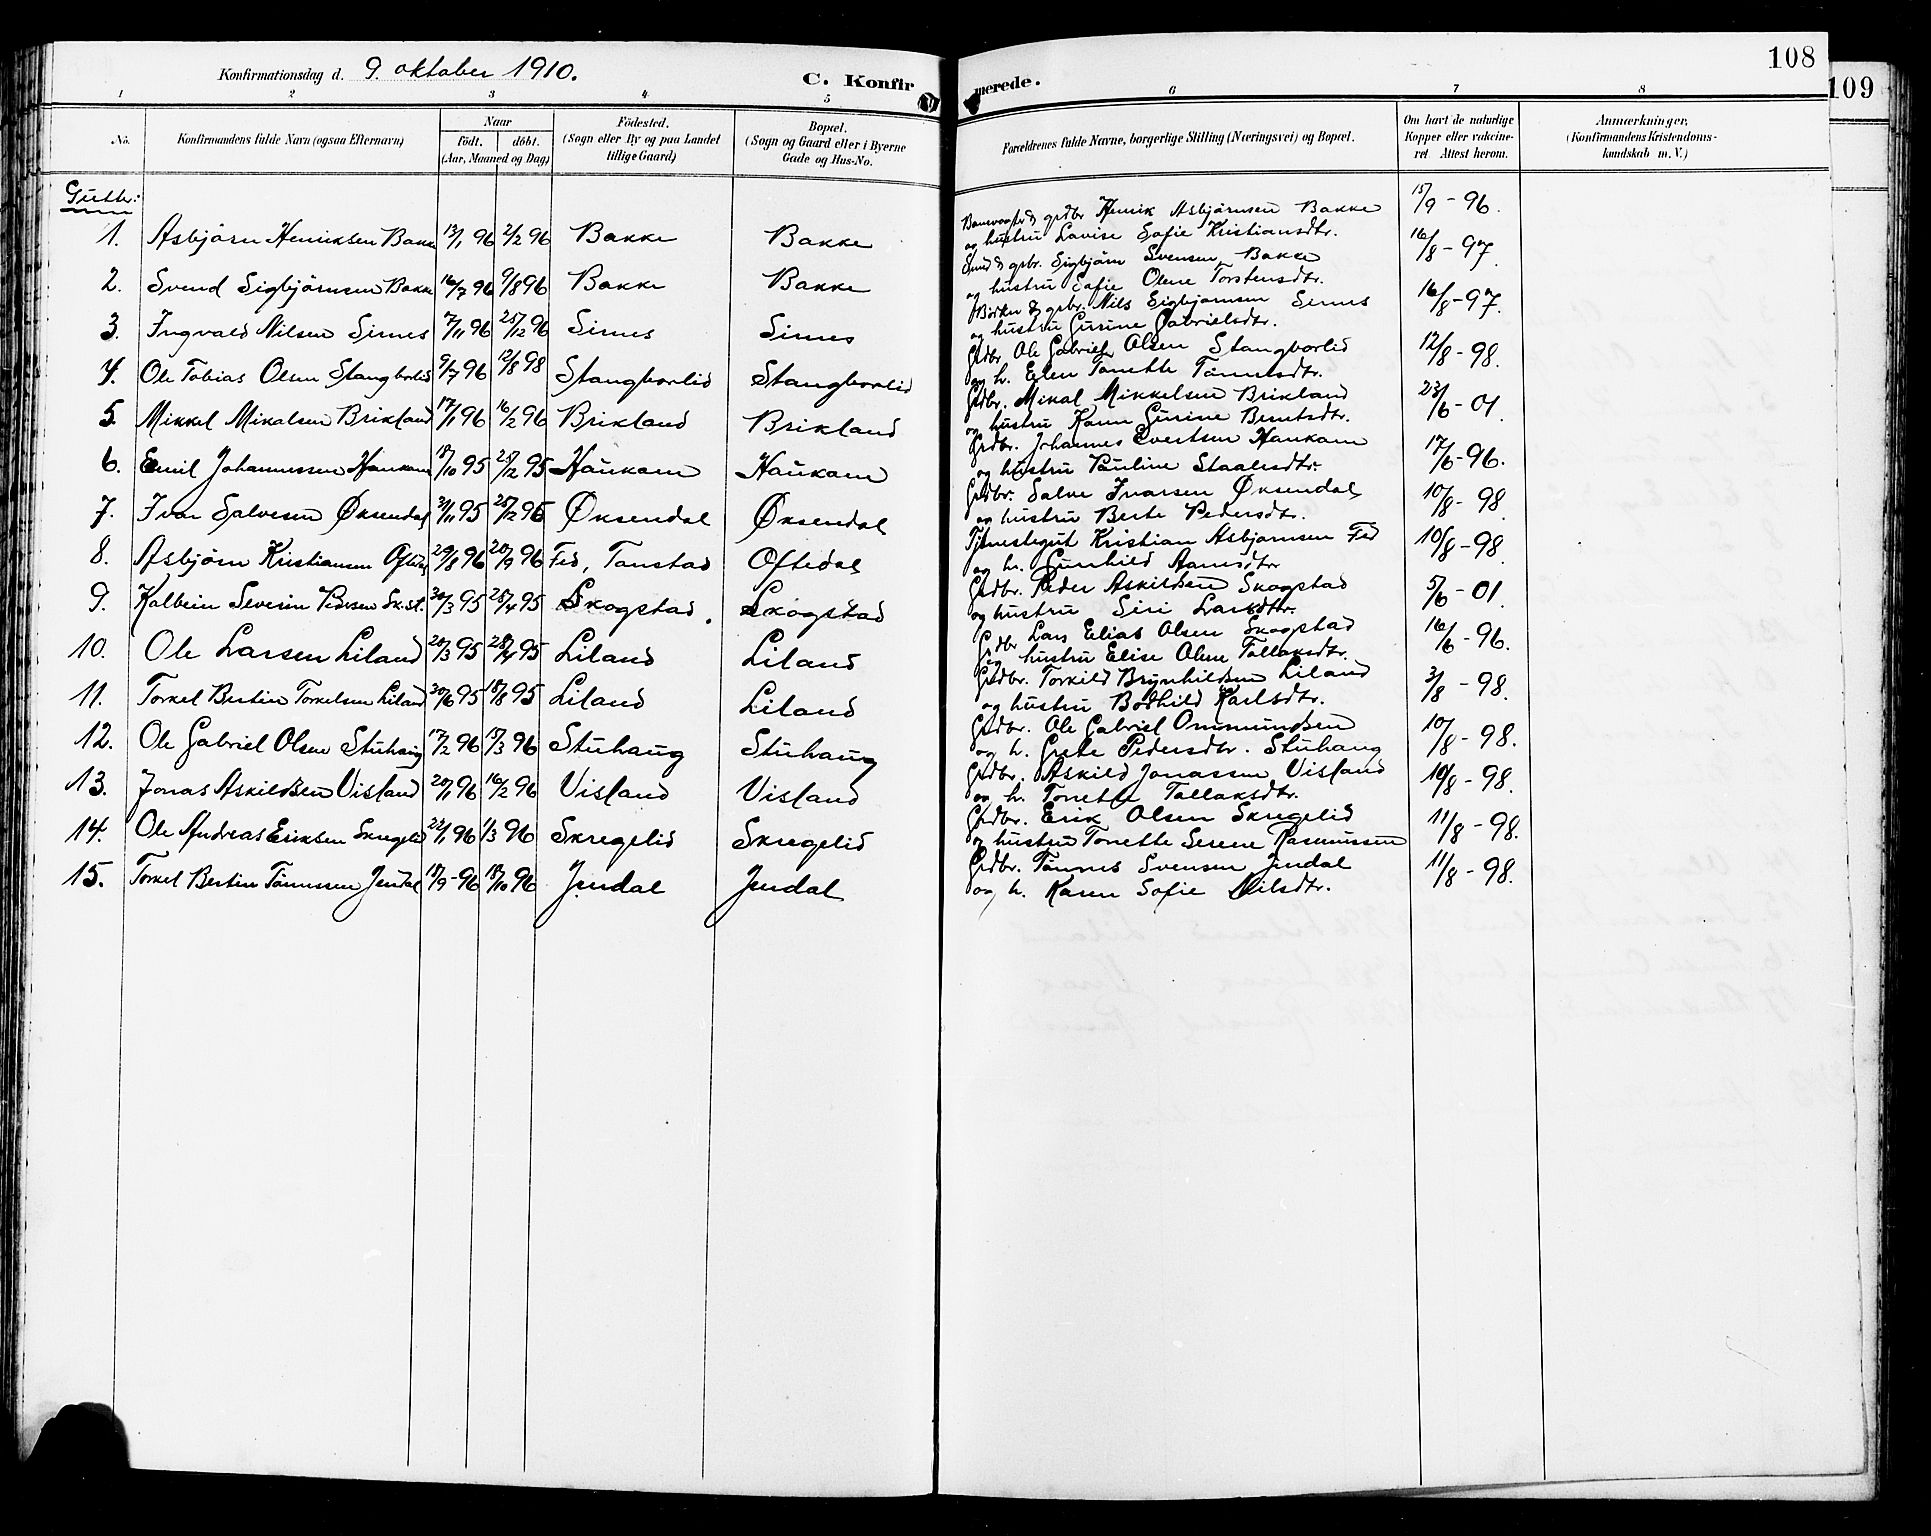 108
109
Konfirmationsdag d. 9. oktober 1910.
C. Konfirmerede.
1 2 3 4 5 6 7 8
No. Konfirmandens fulde Navn (ogsaa Efternavn) Naar født. døbt. (Aar, Maaned og Dag) Fødested. (Sogn eller By og paa Landet tillige Gaard) Bopæl. (Sogn og Gaard eller i Byerne Gade og Hus-No. Forældrenes fulde Navne, borgerlige Stilling (Næringsvei) og Bopæl. Om havt de naturlige Kopper eller vakcineret Attest herom. Anmærkninger, (Konfirmandens Kristendomskundskab m. V.)
Gutter:
1. Asbjörn Henriksen Bakke 13/1 96 2/2 96 Bakke Bakke grdbr Henrik Asbjörnsen Bakke 15/9 - 96.
og hustru Lovise Sofie Kristiansdtr.
2. Svend Sigbjörnsen Bakke 16/7 96 9/8 96 Bakke Bakke Smed & grbr. Sigbjörn Svensen Bakke 16/8 - 97
og hustru Sofie Olene Torstensdtr.
3. Ingvald Nilsen Sirnes 7/11 96 25/12 96 Sirnes Sirnes Bödker & grbr. Nils Sigbjørnsen Sirnes 16/8 - 97.
og hustru Gurine Gabrielsdtr.
4. Ole Tobias Olsen Stangborlid 9/7 96 12/8 98 Stangborlid Stangborlid Grdbr. Ole Gabriel Olsen Stangborlid 12/8 - 98.
og h. Elen Tonette Tönnesdtr.
5. Mikkel Mikalsen Brikland 17/1 96 16/2 96 Brikland Brikland Grdbr. Mikal Mikkelsen Brikland 23/6 - 01
og hustru Karen Gurine Berntsdtr.
6. Emil Johannessen Haukom 18/10 95 25/12 95 Haukom Haukom Grdbr. Johannes Evertsen Haukom 17/6 - 96.
og hustru Pauline Staalesdtr.
7. Ivar Salvesen Øksendal 21/11 95 25/12 95 Øksendal Øksendal Grdbr. Salve Ivarsen Øksendal 10/8 - 98
og hustru Berte Pedersdtr.
8. Asbjörn Kristiansen Oftedal 29/8 96 20/9 96 Fed, Tonstad Oftedal Tjenestegut Kristian Asbjørnsen Fed 10/8 - 98
og h. Gunhild Aamsdtr
9. Kolbein Severin Pedersen Skst. 30/3 95 28/4 95 Skogstad. Skogstad Grdbr. Peder Askildsen Skogstad 5/6 - 01
og hustru Siri Larsdtr.
10. Ole Larsen Liland 20/3 95 28/4 95 Liland Liland Grdbr Lars Elias Olsen Skogstad 16/6 - 96.
og hustru Elise Olene Tallaksdtr.
11. Torkel Bertin Torkelsen Liland 30/6 95 18/8 95 Liland Liland Grdbr. Torkild Brynhildsen Liland 3/8 - 98.
og hustru Bodhild Karlsdtr.
12. Ole Gabriel Olsen Stuhaug 17/2 96 15/3 96 Stuhaug Stuhaug Grdbr. Ole Gabriel Ommundsen 10/8 - 98.
og h. Grete Pedersdtr. Stuhaug
13. Jonas Askildsen Visland 20/1 96 16/2 96 Visland Visland Grdbr. Askild Jonassen Visland 10/8 - 98.
og h. Tonette Tallaksdtr.
14. Ole Andreas Eriksen Skregelid 22/1 96 1/3 96 Skregelid Skregelid Grdbr. Erik Olsen Skregelid 11/8 - 98.
og hustru Tonette Serene Rasmussen
15. Torkel Bertin Tönnessen Jendal 17/9 - 96 18/10 96 Jendal Jendal Grdbr. Tönnes Svensen Jendal 11/8 - 98.
og h. Karen Sofie Nilsdtr.